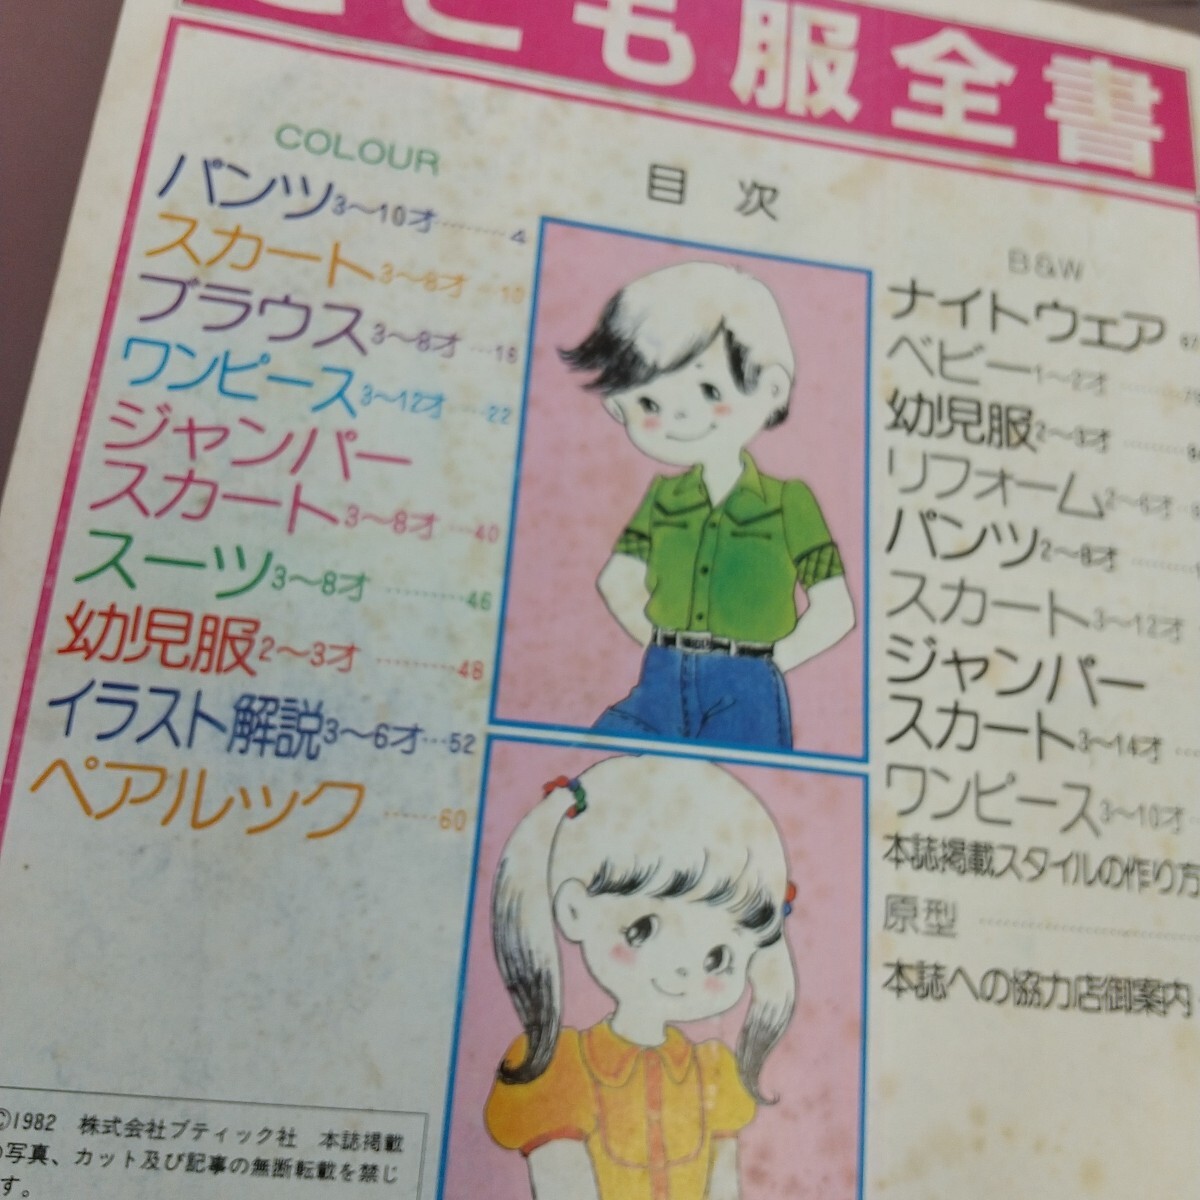 こども服全書
目次
COLOUR
パンツ3〜10才……4
スカート3〜8才…10
ブラウス3〜8才…16
ワンピース3〜12才…22
ジャンパー
スカート3〜8才…40
スーツ3〜8才……46
幼児服2〜3才……48
イラスト解説3〜6才…52
ペアルック……60
B&W
ナイトウェア
ベビー1〜2才……
幼児服2〜3才……
リフォーム2〜6才
パンツ2〜8才……
スカート3〜12才
ジャンパー
スカート3〜14才…
ワンピース3〜10才
本誌掲載スタイルの作り方
原型……
本誌への協力店御案内
©1982 株式会社ブティック社 本誌掲載
の写真、カット及び記事の無断転載を禁じ
ます。